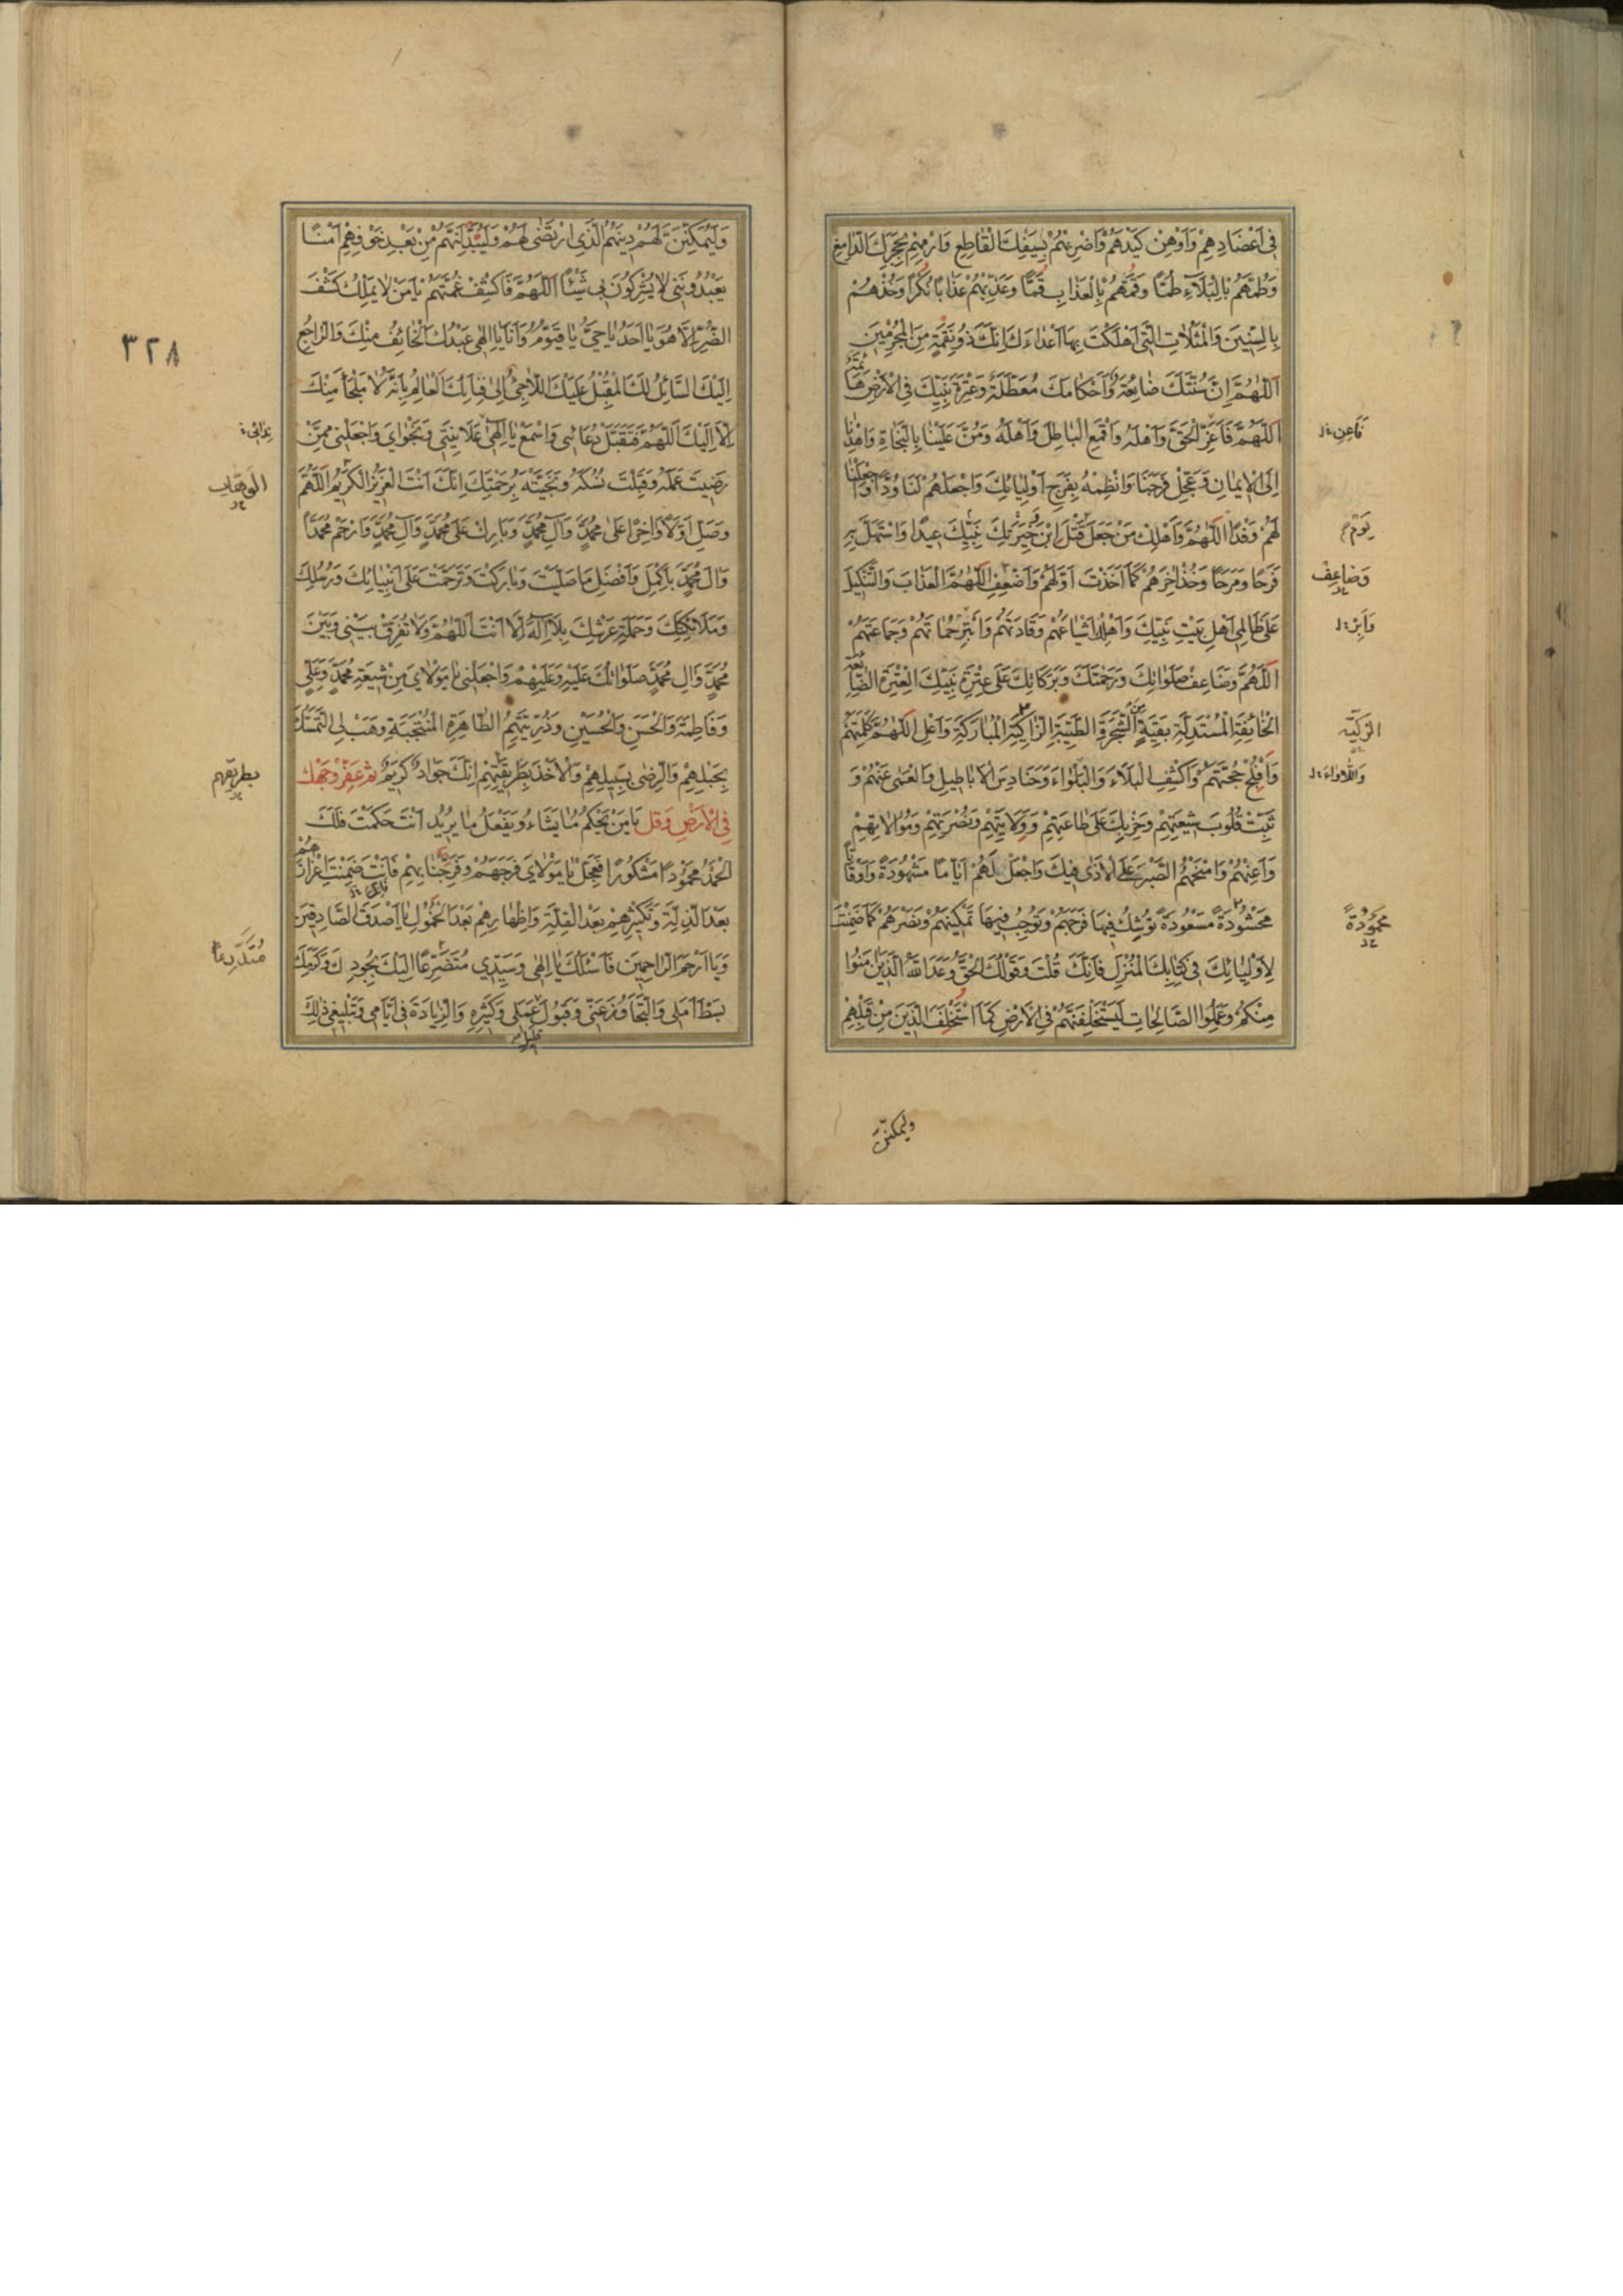 في أَعْضادِهِمْ وَأَوْهِنْ كَيْدَهُمْ وَاضْرِبْهُمْ بِسَيْفِكَ الْقاطِعِ وَارْمِهِمْ بِحَجَرِكَ الدّامِغِ
وَطُمَّهُمْ بِالْبَلاءِ طَمًّا وَقُمَّهُمْ بِالْعَذابِ قَمًّا وَعَذِّبْهُمْ عَذابًا نُكْرًا وَخُذْهُمْ
بِالسِّنينَ وَالْمَثُلاتِ الَّتي أَهْلَكْتَ بِها أَعْداءَكَ إِنَّكَ ذُو نِقْمَةٍ مِنَ الْمُجْرِمينَ
اَللّهُمَّ إِنَّ سُنَّتَكَ ضائِعَةٌ وَأَحْكامَكَ مُعَطَّلَةٌ وَعِتْرَةَ نَبِيِّكَ فِي الْأَرْضِ هائِمَةٌ
اَللّهُمَّ فَأَعِزَّ الْحَقَّ وَأَهْلَهُ وَاقْمَعِ الْباطِلَ وَأَهْلَهُ وَمُنَّ عَلَيْنا بِالنَّجاةِ وَاهْدِنا
فَأَعِنِ
إِلَى الْإيمانِ وَعَجِّلْ فَرَجَنا وَانْظِمْهُ بِفَرَجِ أَوْلِيائِكَ وَاجْعَلْهُمْ لَنا وُدًّا وَاجْعَلْنا
لَهُمْ وَفْدًا اَللّهُمَّ وَأَهْلِكْ مَنْ جَعَلَ قَتْلَ ابْنِ خِيَرَتِكَ نَبِيِّكَ عيدًا وَاسْتَهَلَّ بِهِ
يَوْمَ
فَرَحًا وَمَرَحًا وَخُذْ آخِرَهُمْ كَما أَخَذْتَ أَوَّلَهُمْ وَأَضْعِفِ اللّهُمَّ الْعَذابَ وَالتَّنْكيلَ
وَضاعِفْ
عَلى ظالِمي أَهْلِ بَيْتِ نَبِيِّكَ وَأَهْلِكْ أَشْياعَهُمْ وَقادَتَهُمْ وَأَبِرْ حُماتَهُمْ وَجَماعَتَهُمْ
وَأَبِرْ
اَللّهُمَّ وَضاعِفْ صَلَواتِكَ وَرَحْمَتَكَ وَبَرَكاتِكَ عَلى عِتْرَةِ نَبِيِّكَ الْعِتْرَةِ الضّائِعَةِ
الْخائِفَةِ الْمُسْتَذَلَّةِ بَقِيَّةٍ مِنَ الشَّجَرَةِ الطَّيِّبَةِ الزّاكِيَةِ الْمُبارَكَةِ وَأَعْلِ اللّهُمَّ كَلِمَتَهُمْ
الزَّكِيَّةِ
وَأَفْلِجْ حُجَّتَهُمْ وَاكْشِفِ الْبَلاءَ وَالْبَلْواءَ وَحَنادِسَ الْأَباطيلِ وَالْعَمى عَنْهُمْ وَ
وَاللَّأْواءَ
ثَبِّتْ قُلُوبَ شيعَتِهِمْ وَحِزْبِكَ عَلى طاعَتِهِمْ وَوِلايَتِهِمْ وَنُصْرَتِهِمْ وَمُوالاتِهِمْ
وَأَعِنْهُمْ وَامْنَحْهُمُ الصَّبْرَ عَلَى الْأَذى فيكَ وَاجْعَلْ لَهُمْ أَيّامًا مَشْهُودَةً وَأَوْقاتًا
مَحْشُودَةً مَسْعُودَةً تُوشِكُ فيها فَرَجَهُمْ وَتُوجِبُ فيها تَمْكينَهُمْ وَنَصْرَهُمْ كَما ضَمِنْتَ
مَحْمُودَةً
لِأَوْلِيائِكَ في كِتابِكَ الْمُنْزَلِ فَإِنَّكَ قُلْتَ وَقَوْلُكَ الْحَقُّ وَعَدَ اللهُ الَّذينَ آمَنُوا
مِنْكُمْ وَعَمِلُوا الصّالِحاتِ لَيَسْتَخْلِفَنَّهُمْ فِي الْأَرْضِ كَمَا اسْتَخْلَفَ الَّذينَ مِنْ قَبْلِهِمْ
وليمكنن
٣٢٨
وَلَيُمَكِّنَنَّ لَهُمْ دينَهُمُ الَّذِي ارْتَضى لَهُمْ وَلَيُبَدِّلَنَّهُمْ مِنْ بَعْدِ خَوْفِهِمْ أَمْنًا
يَعْبُدُونَني لا يُشْرِكُونَ بي شَيْئًا اَللّهُمَّ فَاكْشِفْ غُمَّتَهُمْ يا مَنْ لا يَمْلِكُ كَشْفَ
الضُّرِّ إِلّا هُوَ يا أَحَدُ يا حَيُّ يا قَيُّومُ وَأَنَا يا إِلهي عَبْدُكَ الْخائِفُ مِنْكَ وَالرّاجِعُ
إِلَيْكَ السّائِلُ لَكَ الْمُقْبِلُ عَلَيْكَ اللّاجِئُ إِلى فِنائِكَ الْعالِمُ بِأَنَّهُ لا مَلْجَأَ مِنْكَ
إِلّا إِلَيْكَ اَللّهُمَّ فَتَقَبَّلْ دُعائي وَاسْمَعْ يا إِلهي عَلانِيَتي وَنَجْوايَ وَاجْعَلْني مِمَّنْ
رَضيتَ عَمَلَهُ وَقَبِلْتَ نُسُكَهُ وَنَجَّيْتَهُ بِرَحْمَتِكَ إِنَّكَ أَنْتَ الْعَزيزُ الْكَريمُ اَللّهُمَّ
الوهاب
وَصَلِّ أَوَّلًا وَآخِرًا عَلى مُحَمَّدٍ وَآلِ مُحَمَّدٍ وَبارِكْ عَلى مُحَمَّدٍ وَآلِ مُحَمَّدٍ وَارْحَمْ مُحَمَّدًا
وَآلَ مُحَمَّدٍ بِأَكْمَلِ وَأَفْضَلِ ما صَلَّيْتَ وَبارَكْتَ وَتَرَحَّمْتَ عَلى أَنْبِيائِكَ وَرُسُلِكَ
وَمَلائِكَتِكَ وَحَمَلَةِ عَرْشِكَ بِلا إِلهَ إِلّا أَنْتَ اَللّهُمَّ وَلا تُفَرِّقْ بَيْني وَبَيْنَ
مُحَمَّدٍ وَآلِ مُحَمَّدٍ صَلَواتُكَ عَلَيْهِ وَعَلَيْهِمْ وَاجْعَلْني يا مَوْلايَ مِنْ شيعَةِ مُحَمَّدٍ وَعَلِيٍّ
وَفاطِمَةَ وَالْحَسَنِ وَالْحُسَيْنِ وَذُرِّيَّتِهِمُ الطّاهِرَةِ الْمُنْتَجَبَةِ وَهَبْ لِيَ التَّمَسُّكَ
بِحَبْلِهِمْ وَالرِّضى بِسَبيلِهِمْ وَالْأَخْذَ بِطَريقَتِهِمْ إِنَّكَ جَوادٌ كَريمٌ ثم عَفِّرْ وَجْهَكَ
بطريقهم
فِي الْأَرْضِ وَقُل يا مَنْ يَحْكُمُ ما يَشاءُ وَيَفْعَلُ ما يُريدُ أَنْتَ حَكَمْتَ فَلَكَ
الْحَمْدُ مَحْمُودًا مَشْكُورًا فَعَجِّلْ يا مَوْلايَ فَرَجَهُمْ وَفَرَجَنا بِهِمْ فَأَنْتَ ضَمِنْتَ إِعْزازَهُمْ
بَعْدَ الذِّلَّةِ وَتَكْثيرَهُمْ بَعْدَ الْقِلَّةِ وَإِظْهارَهُمْ بَعْدَ الْخُمُولِ يا أَصْدَقَ الصّادِقينَ
وَيا أَرْحَمَ الرّاحِمينَ فَأَسْئَلُكَ يا إِلهي وَسَيِّدي مُتَضَرِّعًا إِلَيْكَ بِجُودِكَ وَكَرَمِكَ
بَسْطَ أَمَلي وَالتَّجاوُزَ عَنّي وَقَبُولَ عَمَلي وَكَثيرِهِ وَالزِّيادَةَ في أَيّامي وَتَبْليغي ذلِكَ
قليل